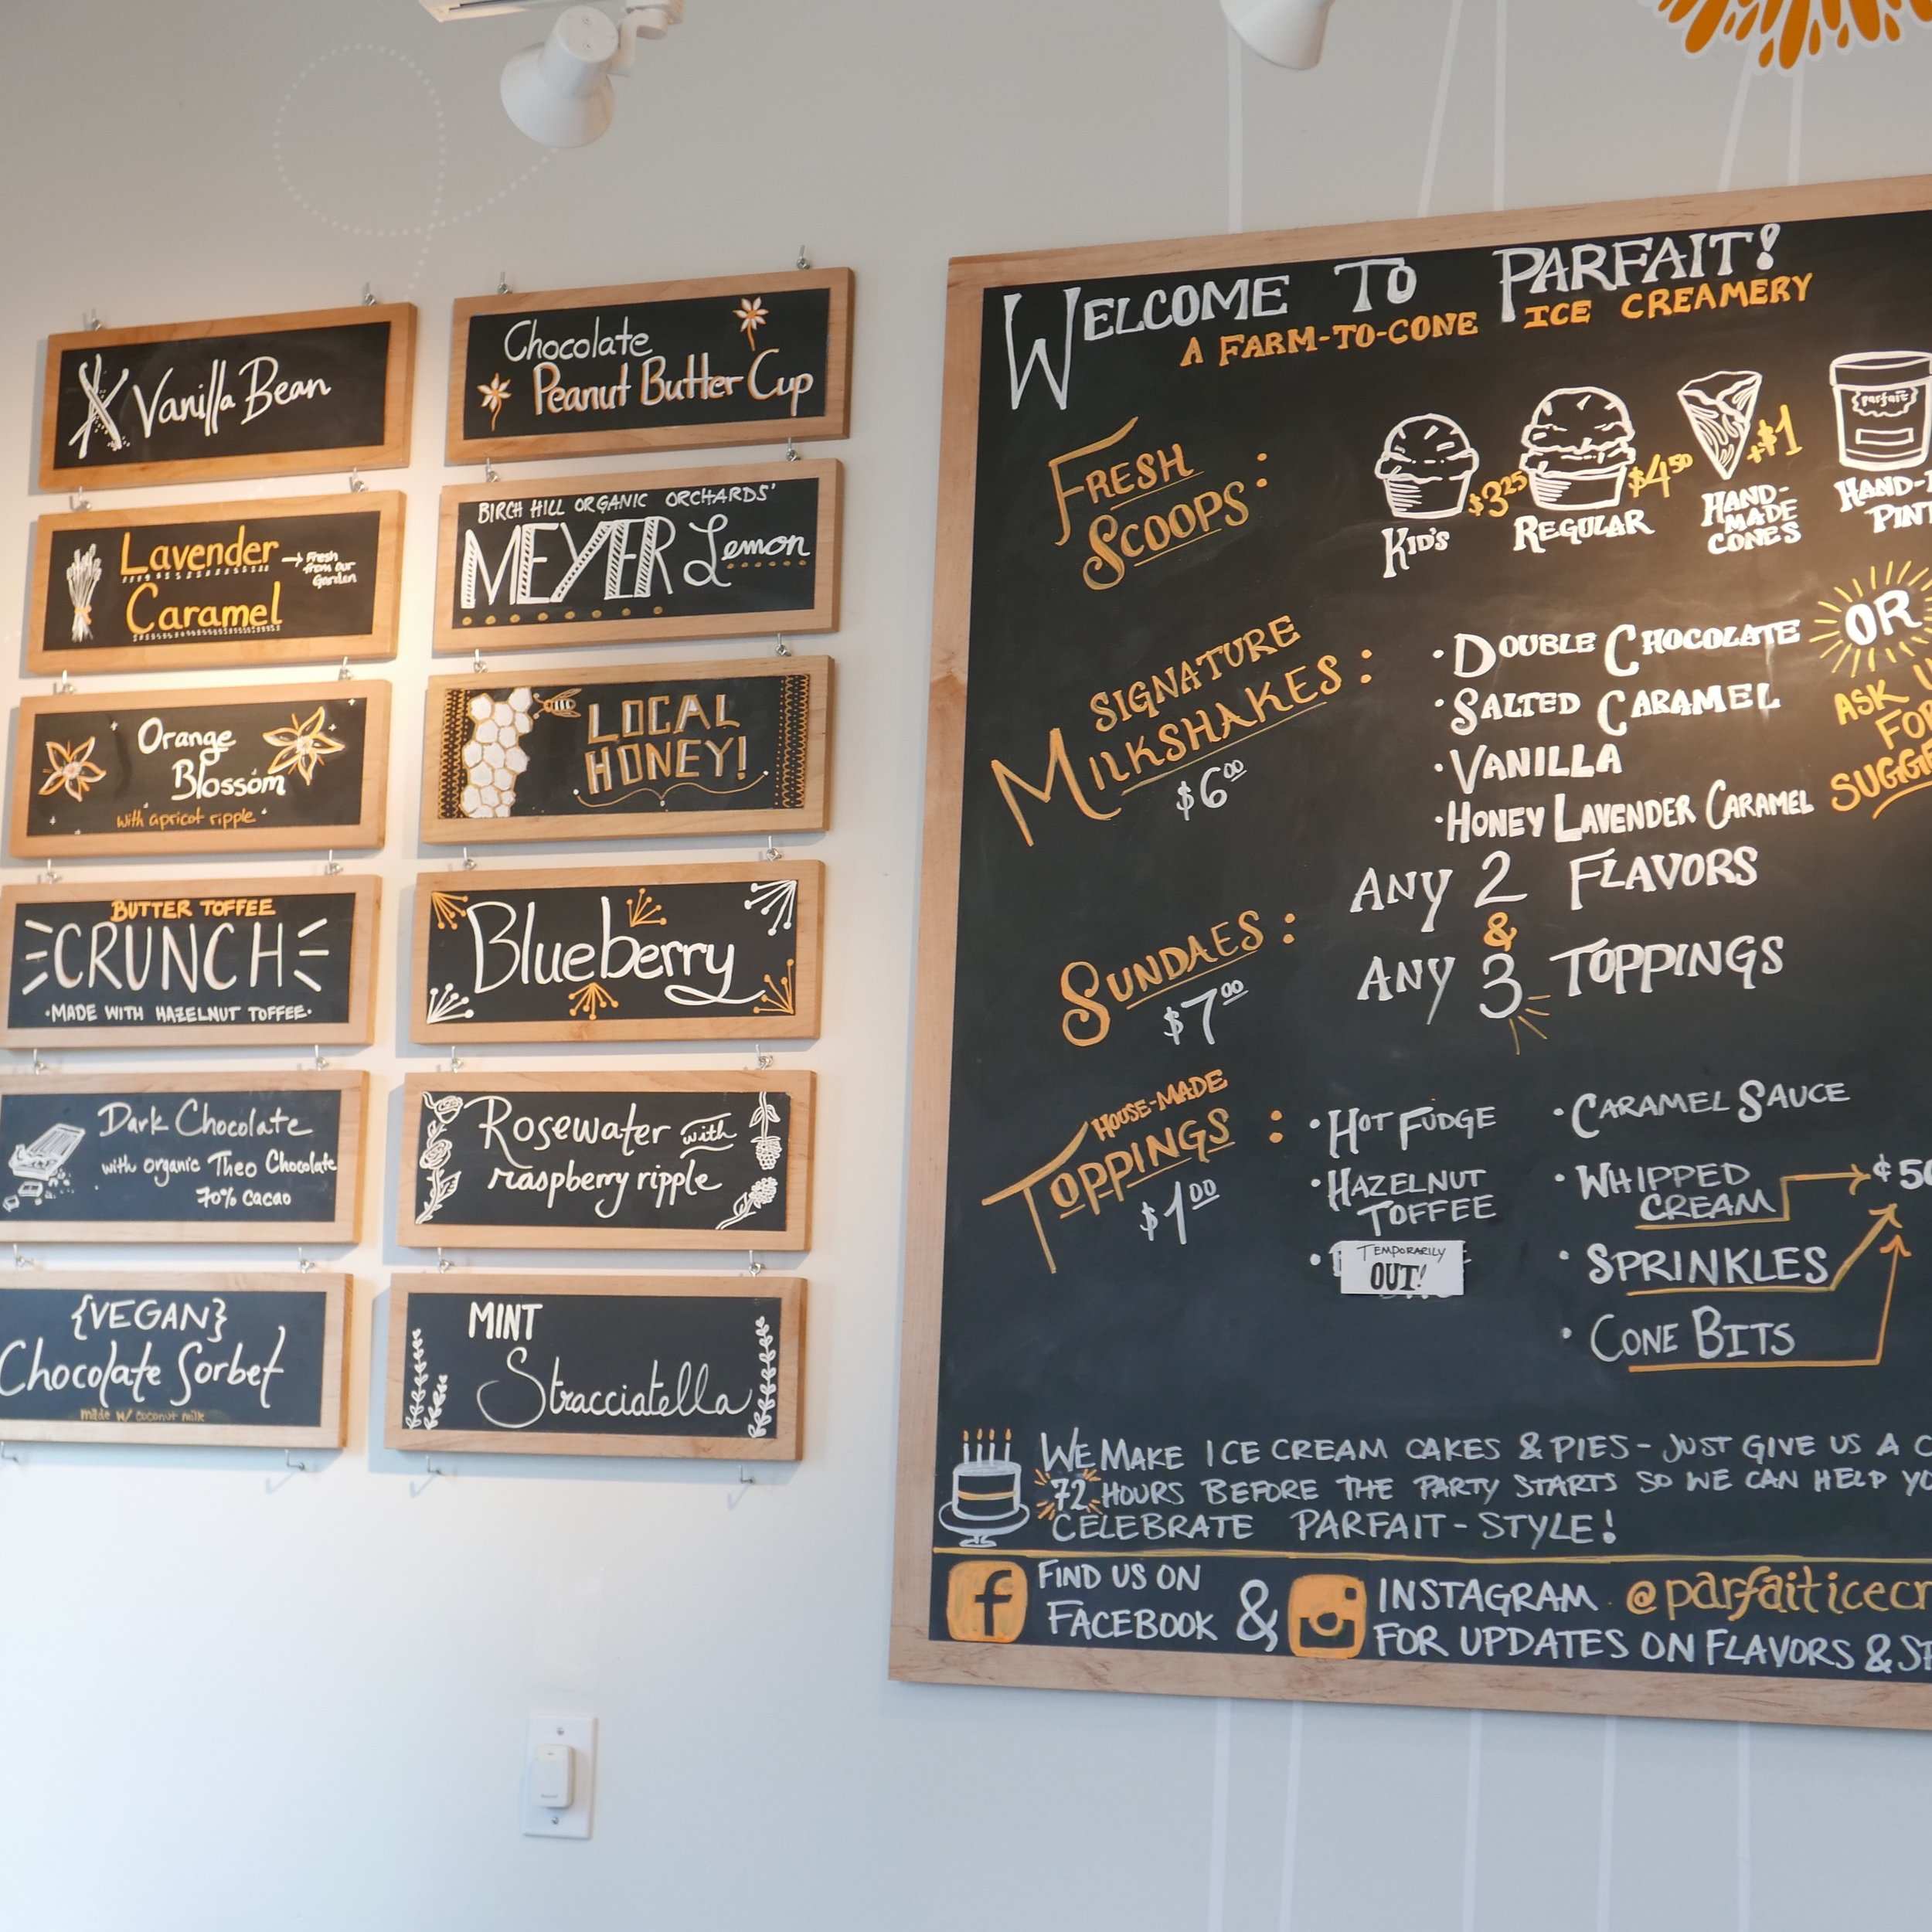 Vanilla Bean
Lavender
Caramel
Fresh
from our
Garden
Orange
Blossom
with apricot ripple
BUTTER TOFFEE
CRUNCH
•MADE WITH HAZELNUT TOFFEE•
Dark Chocolate
with organic Theo Chocolate
70% cacao
{VEGAN}
Chocolate Sorbet
made w/ coconut milk
Chocolate
Peanut Butter Cup
BIRCH HILL ORGANIC ORCHARDS'
MEYER Lemon
LOCAL
HONEY!
Blueberry
Rosewater with
raspberry ripple
MINT
Stracciatella
WELCOME TO PARFAIT!
A FARM-TO-CONE ICE CREAMERY
FRESH
SCOOPS:
KID'S
$3.25
REGULAR
$4.50
HAND-
MADE
CONES
+$1
parfait
HAND-
PINT
SIGNATURE
MILKSHAKES:
$6.00
•DOUBLE CHOCOLATE
•SALTED CARAMEL
•VANILLA
•HONEY LAVENDER CARAMEL
OR
ASK
FOR
SUGGE
SUNDAES:
$7.00
ANY 2 FLAVORS
&
ANY 3 TOPPINGS
HOUSE-MADE
TOPPINGS:
$1.00
•HOT FUDGE
•HAZELNUT
TOFFEE
TEMPORARILY
OUT!
•CARAMEL SAUCE
•WHIPPED
CREAM
¢50
•SPRINKLES
•CONE BITS
WE MAKE ICE CREAM CAKES & PIES - JUST GIVE US A C
72 HOURS BEFORE THE PARTY STARTS SO WE CAN HELP YO
CELEBRATE PARFAIT-STYLE!
FIND US ON
FACEBOOK
&
INSTAGRAM @parfaiticecr
FOR UPDATES ON FLAVORS & SP